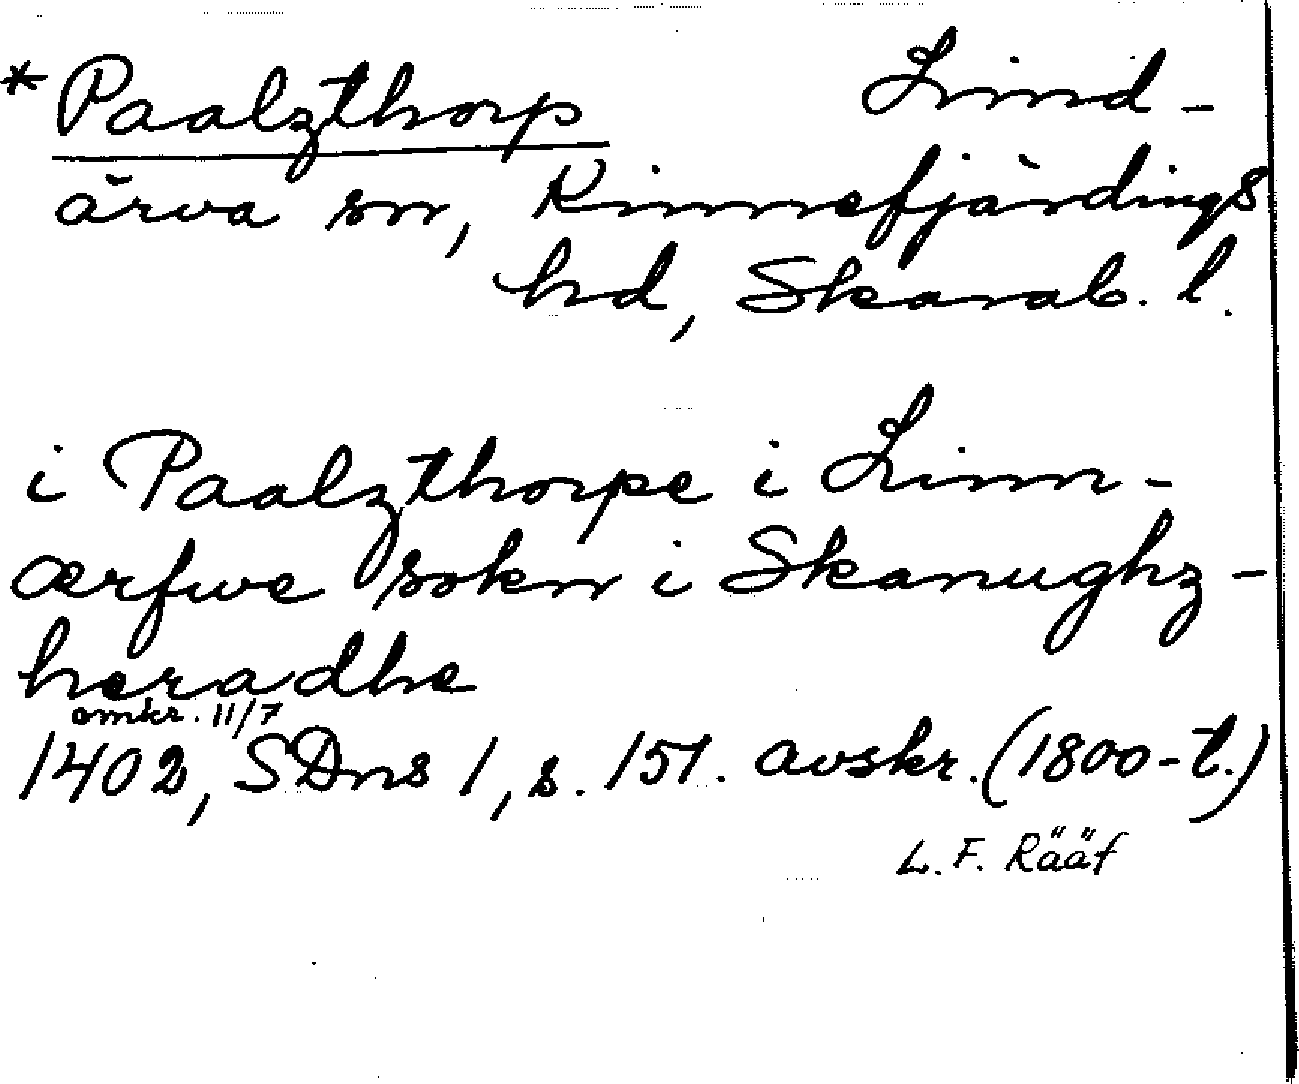 * Paalzthorp Lind-
ärva sn, Kinnefjärdings
hd, Skarab. l.
i Paalzthorpe i Linn-
ærfwe sokn i Skanughz-
heradhe
omkr. 11/7
1402, SDns 1, s. 151. avskr. (1800-t.)
L. F. Rääf